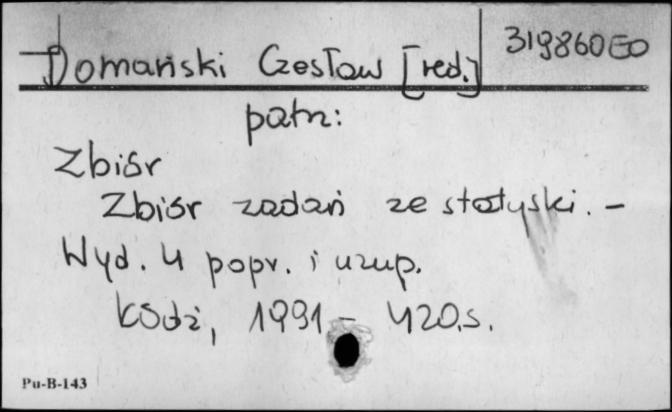 Domański Czesław [red.] 319860 EO
patrz:
Zbiór
Zbiór zadań ze statyski. -
Wyd. 4 popr. i uzup.
Łódź, 1991 - 420.s.
Pu-B-143